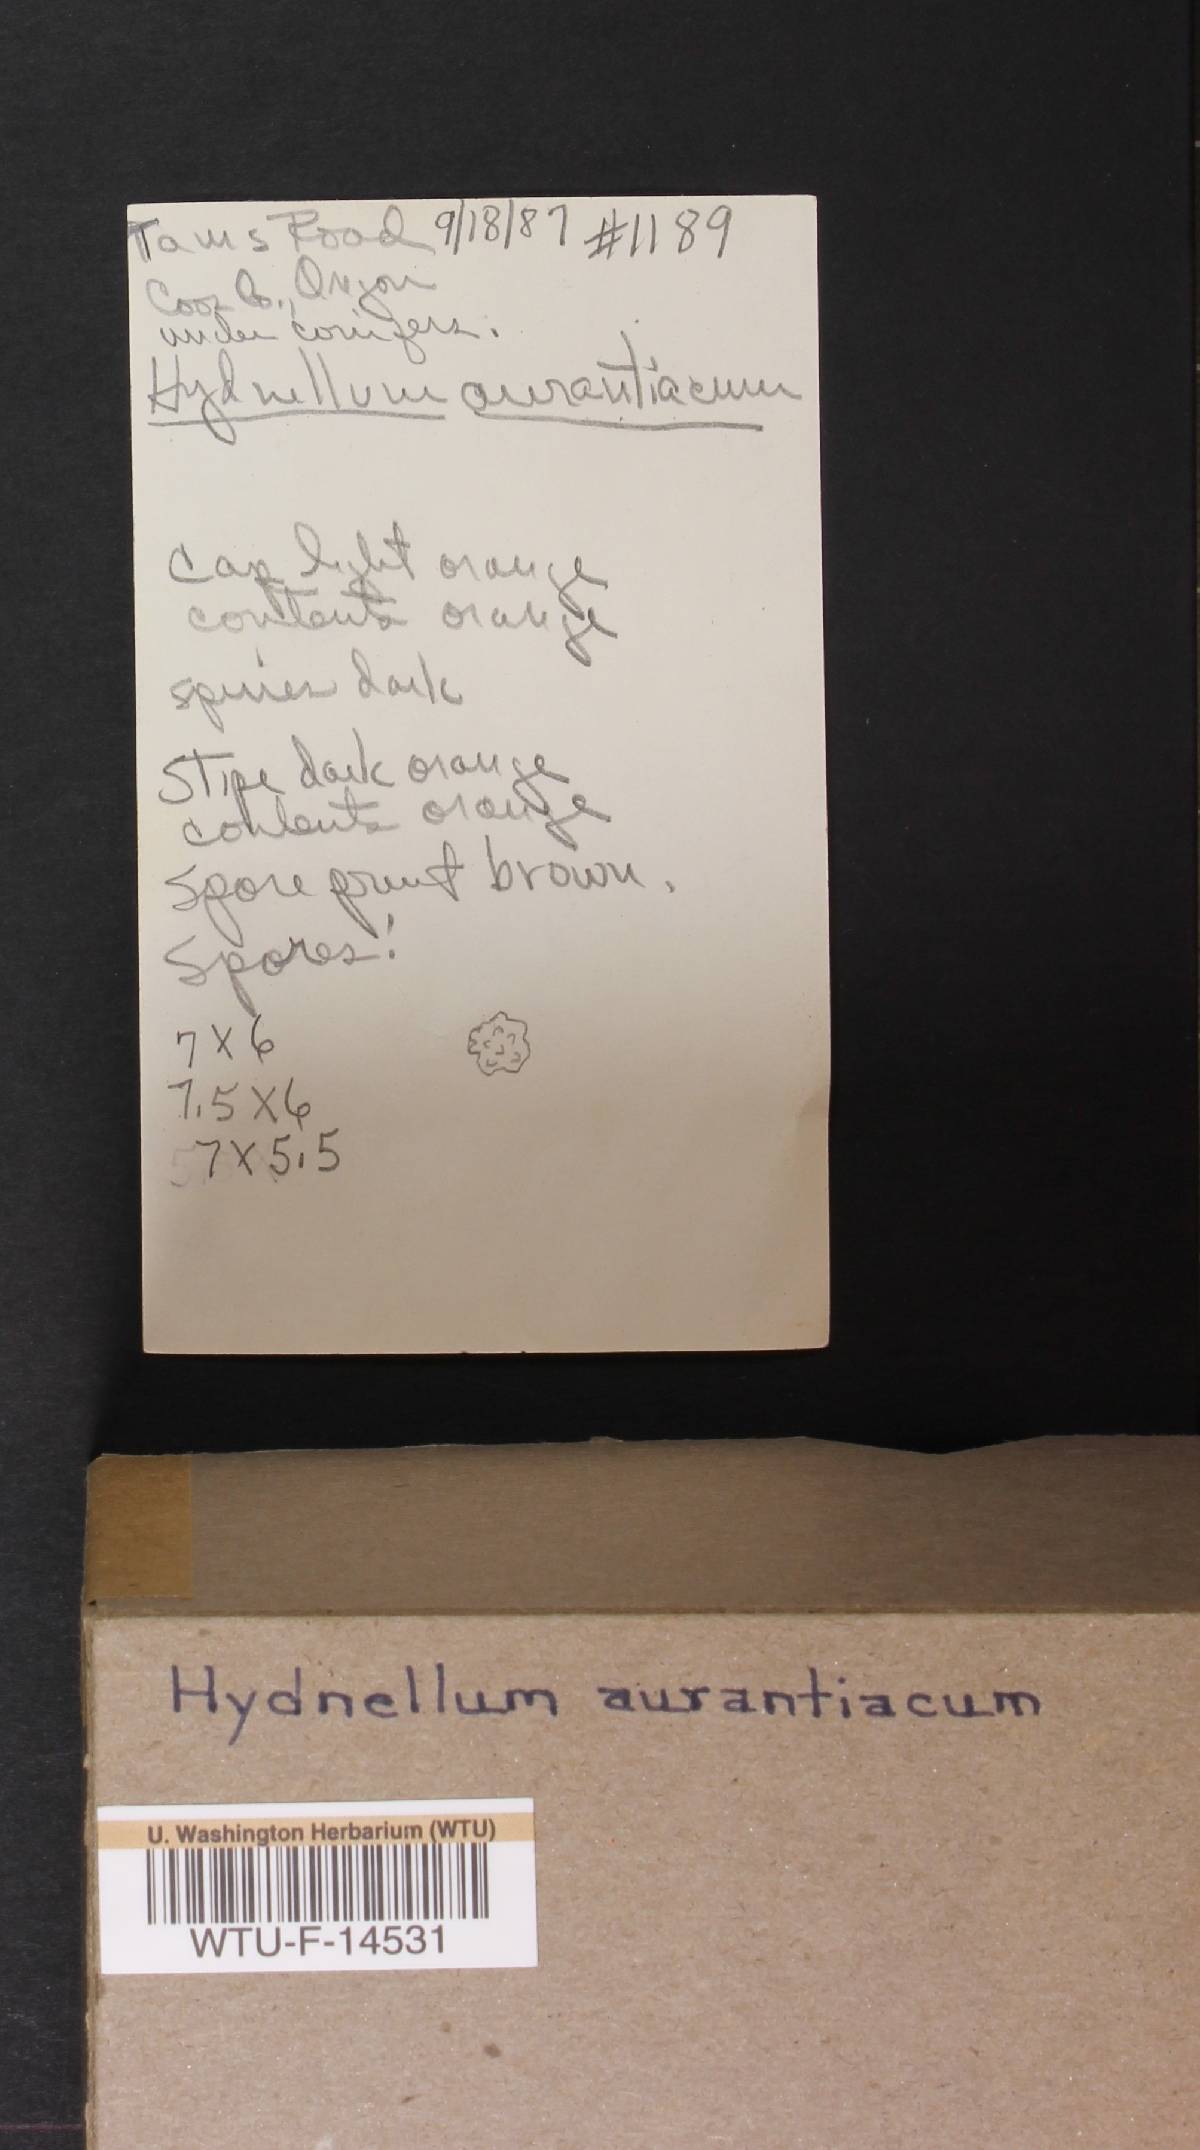 Taws Road 9/18/87 #1189
Coos Co., Oregon
under conifers.
Hydnellum aurantiacum
Cap light orange
contents orange
spines dark
Stipe dark orange
contents orange
Spore print brown.
Spores:
7X6
7.5X6
7X5.5
Hydnellum aurantiacum
U. Washington Herbarium (WTU)
WTU-F-14531